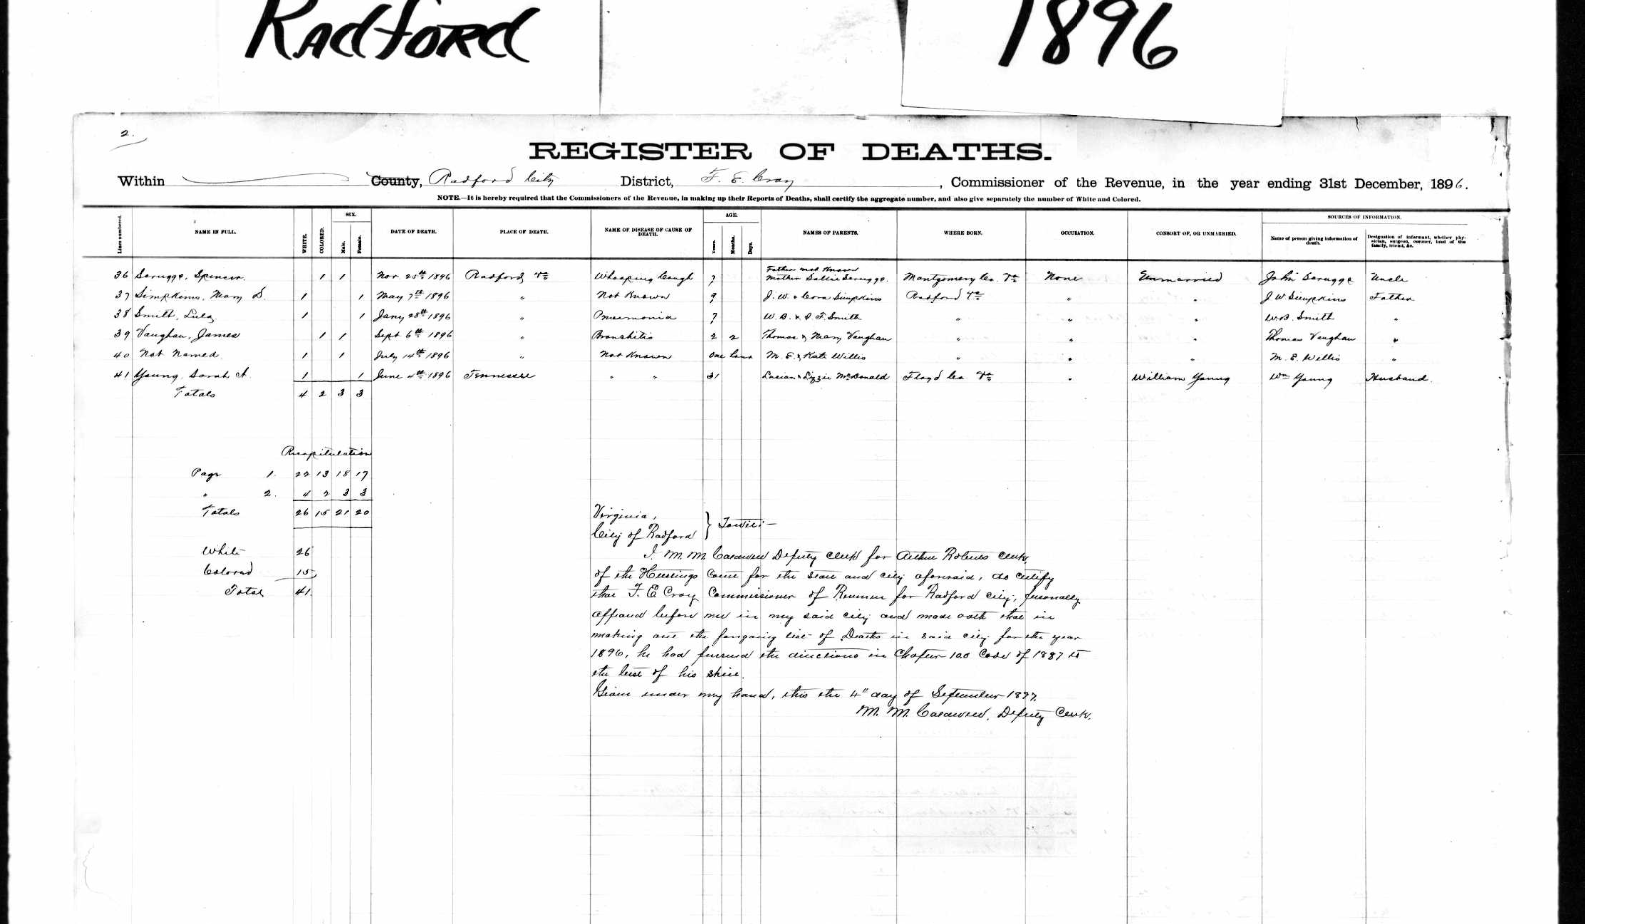 RADFORD
1896
2.
REGISTER OF DEATHS.
Within County, Radford City District, F. E. Cray, Commissioner of the Revenue, in the year ending 31st December, 1896.
NOTE.—It is hereby required that the Commissioners of the Revenue, in making up their Reports of Deaths, shall certify the aggregate number, and also give separately the number of White and Colored.
Lines numbered. NAME IN FULL. WHITE. COLORED. SEX. Male. Female. DATE OF DEATH. PLACE OF DEATH. NAME OF DISEASE OF CAUSE OF DEATH. AGE. Years. Months. Days. NAMES OF PARENTS. WHERE BORN. OCCUPATION. CONSORT OF, OR UNMARRIED. SOURCES OF INFORMATION. Name of person giving information of death. Designation of informant, whether physician, surgeon, coroner, head of the family, friend, &c.
36 Scruggs, Spencer 1 1 Nov 25th 1896 Radford, Va Whooping Cough 7 Father not Known Mother Sallie Scruggs Montgomery Co. Va None Unmarried John Scruggs Uncle
37 Simpkins, Mary S. 1 1 May 7th 1896 " Not Known 9 J. W. & Cora Simpkins Radford Va " " J W Simpkins Father
38 Smith, Lula 1 1 Jany 28th 1896 " Pneumonia 7 W. B. & S. F. Smith " " " W. B. Smith "
39 Vaughan, James 1 1 Sept 6th 1896 " Bronchitis 2 2 Thomas & Mary Vaughan " " " Thomas Vaughan "
40 Not Named 1 1 July 14th 1896 " Not Known One hour M. E. & Kate Willis " " " M. E. Willis "
41 Young Sarah A 1 1 June 4th 1896 Tennessee " " 31 Lucian & Lizzie McDonald Floyd Co Va " William Young Wm Young Husband
Totals 4 2 3 3
Recapitulation
Page 1. 22 13 18 17
" 2. 4 2 3 3
Totals 26 15 21 20
White 26
Colored 15
Total 41
Virginia,
City of Radford } Towit:—
I M M Caldwell Deputy Clerk for Arthur Roberts Clerk
of the Hustings Court for the State and City aforesaid, do certify
that F. E Cray Commissioner of Revenue for Radford City, personally
appeared before me in my said city and made oath that in
making out the foregoing list of Deaths in said city for the year
1896, he had pursued the directions in Chapter 100 Code of 1887 to
the best of his skill.
Given under my hand, this the 4" day of September 1897
M. M. Caldwell, Deputy Clerk.